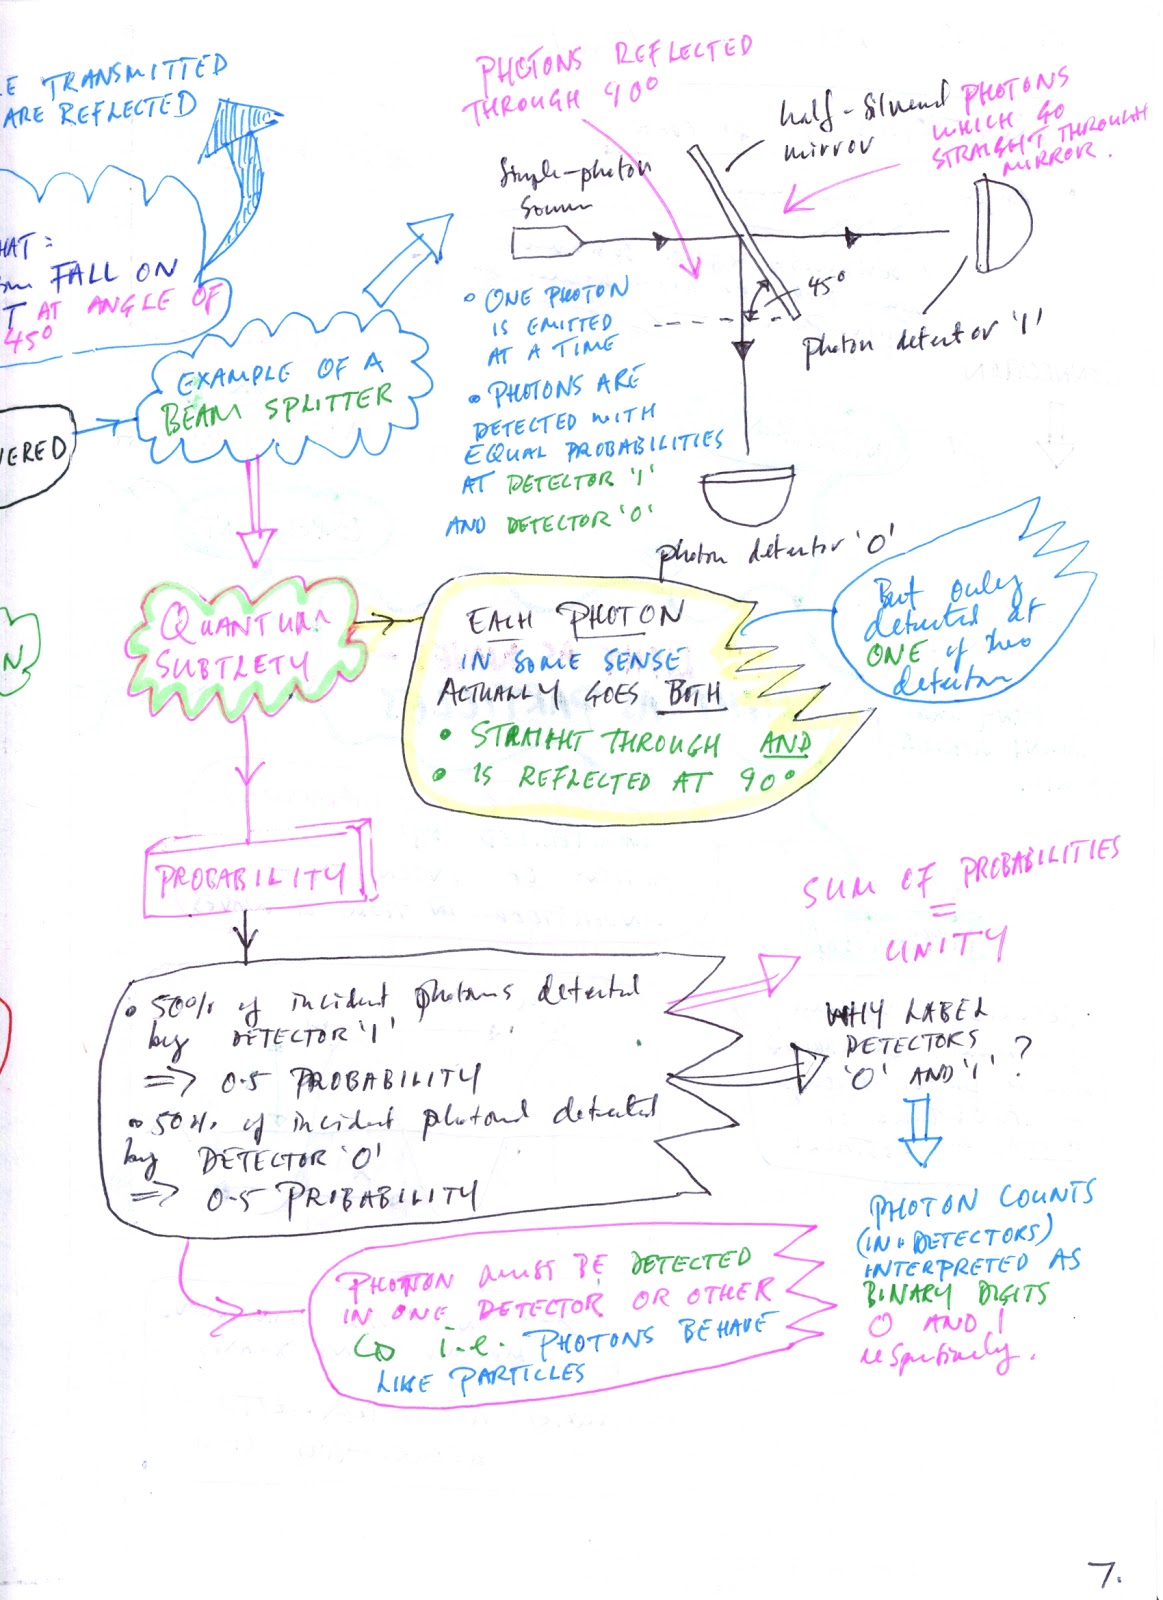 E TRANSMITTED
ARE REFLECTED
HAT:
FALL ON
T AT ANGLE OF
45°
VERED
N
EXAMPLE OF A
BEAM SPLITTER
PHOTONS REFLECTED
THROUGH 90°
half-silvered
mirror
PHOTONS
WHICH GO
STRAIGHT THROUGH
MIRROR.
Single-photon
source
45°
photon detector '1'
• ONE PHOTON
IS EMITTED
AT A TIME
• PHOTONS ARE
DETECTED WITH
EQUAL PROBABILITIES
AT DETECTOR '1'
AND DETECTOR '0'
photon detector '0'
QUANTUM
SUBTLETY
EACH PHOTON
IN SOME SENSE
ACTUALLY GOES BOTH
• STRAIGHT THROUGH AND
• IS REFLECTED AT 90°
But only
detected at
ONE of two
detectors
PROBABILITY
• 50% of incident photons detected
by DETECTOR '1'
=> 0.5 PROBABILITY
• 50% of incident photons detected
by DETECTOR '0'
=> 0.5 PROBABILITY
SUM OF PROBABILITIES
=
UNITY
WHY LABEL
DETECTORS
'0' AND '1' ?
PHOTON COUNTS
(IN DETECTORS)
INTERPRETED AS
BINARY DIGITS
0 AND 1
respectively.
PHOTON MUST BE DETECTED
IN ONE DETECTOR OR OTHER
i.e. PHOTONS BEHAVE
LIKE PARTICLES
7.